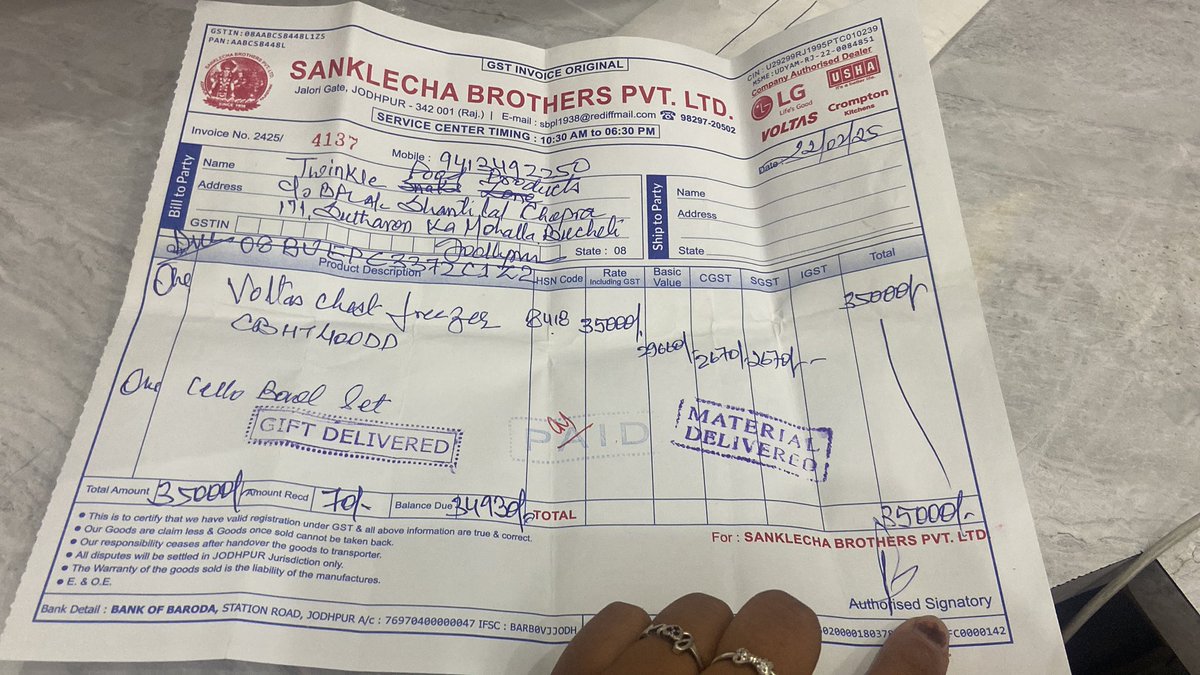 GSTIN: 08AABCS8448L1Z5
PAN: AABCS8448L
GST INVOICE ORIGINAL
CIN - U29299RJ1995PTC010239
MSME: UDYAM-RJ-22-0084851
Company Authorised Dealer
SANKLECHA BROTHERS PVT. LTD.
SINCE 1938
Jalori Gate, JODHPUR - 342 001 (Raj.) | E-mail : sbpl1938@rediffmail.com ☎ 98297-20502
SERVICE CENTER TIMING : 10:30 AM to 06:30 PM
LG
Life's Good
USHA
VOLTAS
Crompton
Kitchens
Invoice No. 2425/ 4137
Mobile : 9413492250
Date : 22/02/25
Bill to Party
Name Twinkle Food Products
Address C/o B.M. Shantilal Chopra
171, Sutharon Ka Mohalla
Jodhpur
GSTIN
State : 08
08BUEPC3372C1Z2
Ship to Party
Name
Address
State
Product Description
HSN Code
Rate Including GST
Basic Value
CGST
SGST
IGST
Total
One Voltas Chest freezer 8418 35000/- 35000/-
CBHT400DD 29660/- 2670/- 2670/-
One Cello Bowl Set
GIFT DELIVERED
PAID
MATERIAL DELIVERED
Total Amount 35000/- Amount Recd 70/- Balance Due 34930/- TOTAL 35000/-
• This is to certify that we have valid registration under GST & all above information are true & correct.
• Our Goods are claim less & Goods once sold cannot be taken back.
• Our responsibility ceases after handover the goods to transporter.
• All disputes will be settled in JODHPUR Jurisdiction only.
• The Warranty of the goods sold is the liability of the manufactures.
• E. & O.E.
For : SANKLECHA BROTHERS PVT. LTD
Authorised Signatory
Bank Detail : BANK OF BARODA, STATION ROAD, JODHPUR A/c : 76970400000047 IFSC : BARB0VJJODH